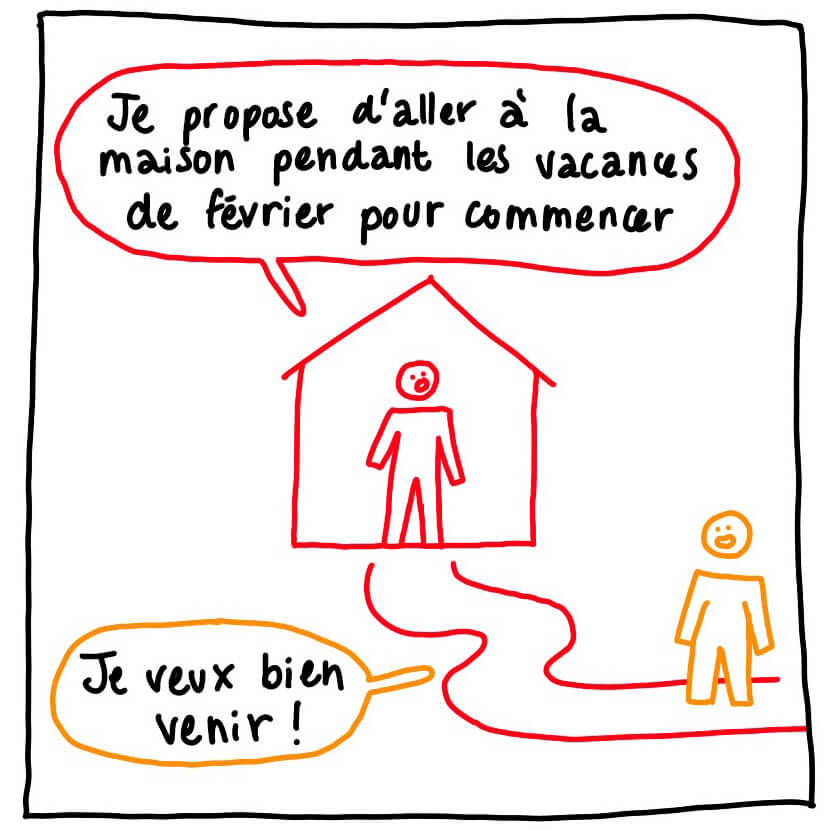 Je propose d'aller à la
maison pendant les vacances
de février pour commencer
Je veux bien
venir !